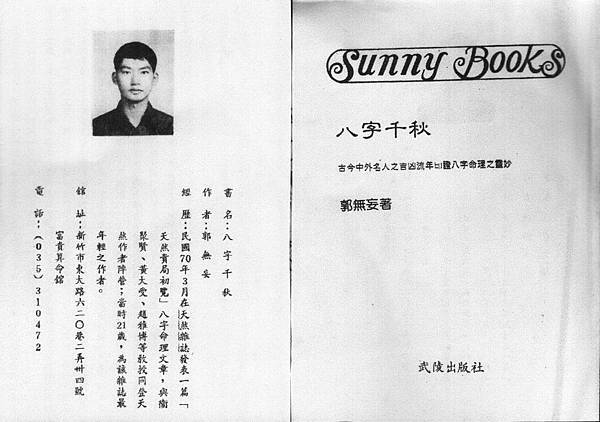 Sunny Books
八字千秋
古今中外名人之吉凶流年印證八字命理之靈妙
郭無妄著
武陵出版社
書 名:八字千秋
作 者:郭無妄
經 歷:民國70年3月在天然雜誌發表一篇「
天然貴局初覽」八字命理文章,與衛
聚賢、黃大受、趙雅博等教授同登天
然作者陣營;當時21歲,為該雜誌最
年輕之作者。
館 址:新竹市東大路六二〇巷二弄卅四號
富貴算命館
電 話:(035)310472